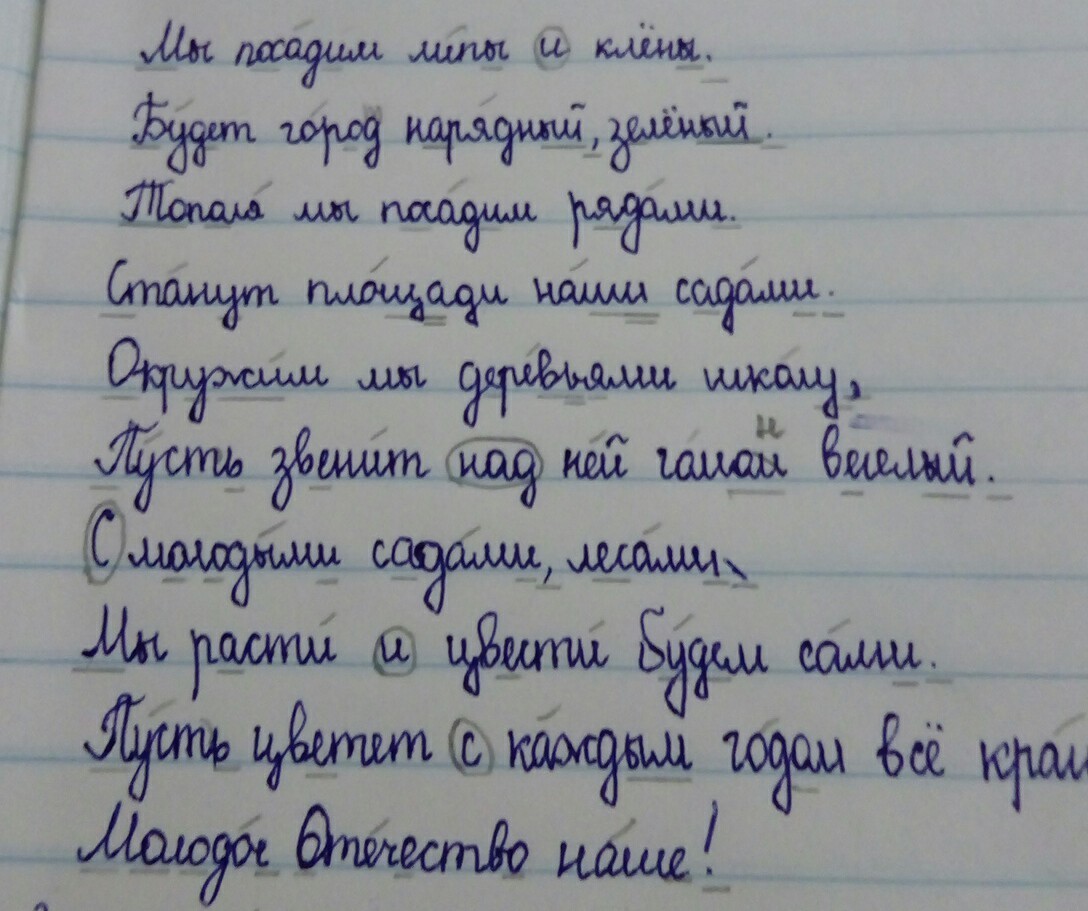 Мы посадим липы и клёны.
Будет город нарядный, зелёный.
Тополя мы посадим рядами.
Станут площади наши садами.
Окружим мы деревьями школу,
Пусть звенит над ней гомон веселый.
С молодыми садами, лесами,
Мы расти и цвести Будем сами.
Пусть цветет с каждым годом всё
Молодое Отечество наше!